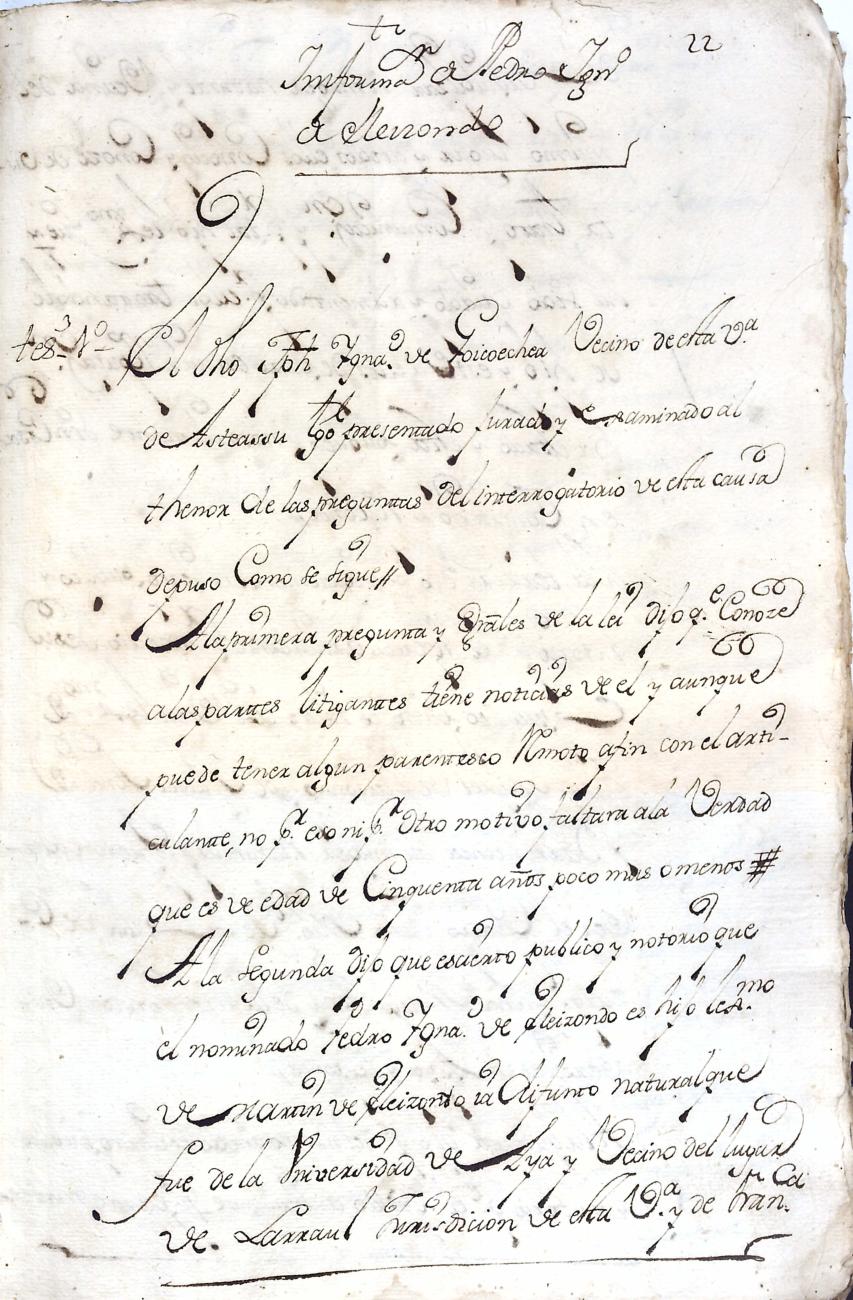 22
Informaⁿ de Pedro Ignº
de Aleizondo
tesº 1º El dho Jph Ygnaº de Goicoechea Vecino de esta Vª
de Asteassu tgo presentado jurado y examinado al
thenor de las preguntas del interrogatorio de esta causa
depuso Como se sigue //
A la primera pregunta y Gрales de la lei dijo q.e Conoze
a las partes litigantes tiene noticias de el y aunque
puede tener algun parentesco Rmoto afin con el arti-
culante, no pr eso ni pr otro motivo faltara a la Verdad
que es de edad de Cinquenta años poco mas o menos #
A la segunda dijo que es cierto publico y notorio que
el nominado Pedro Ygnaº de Aleizondo es hijo lexmo
de Martin de Aleizondo ia difunto natural que
fue de la Universidad de Aya y Vecino del lugar
de Larraul Jurisdicion de esta Vª y de Franca